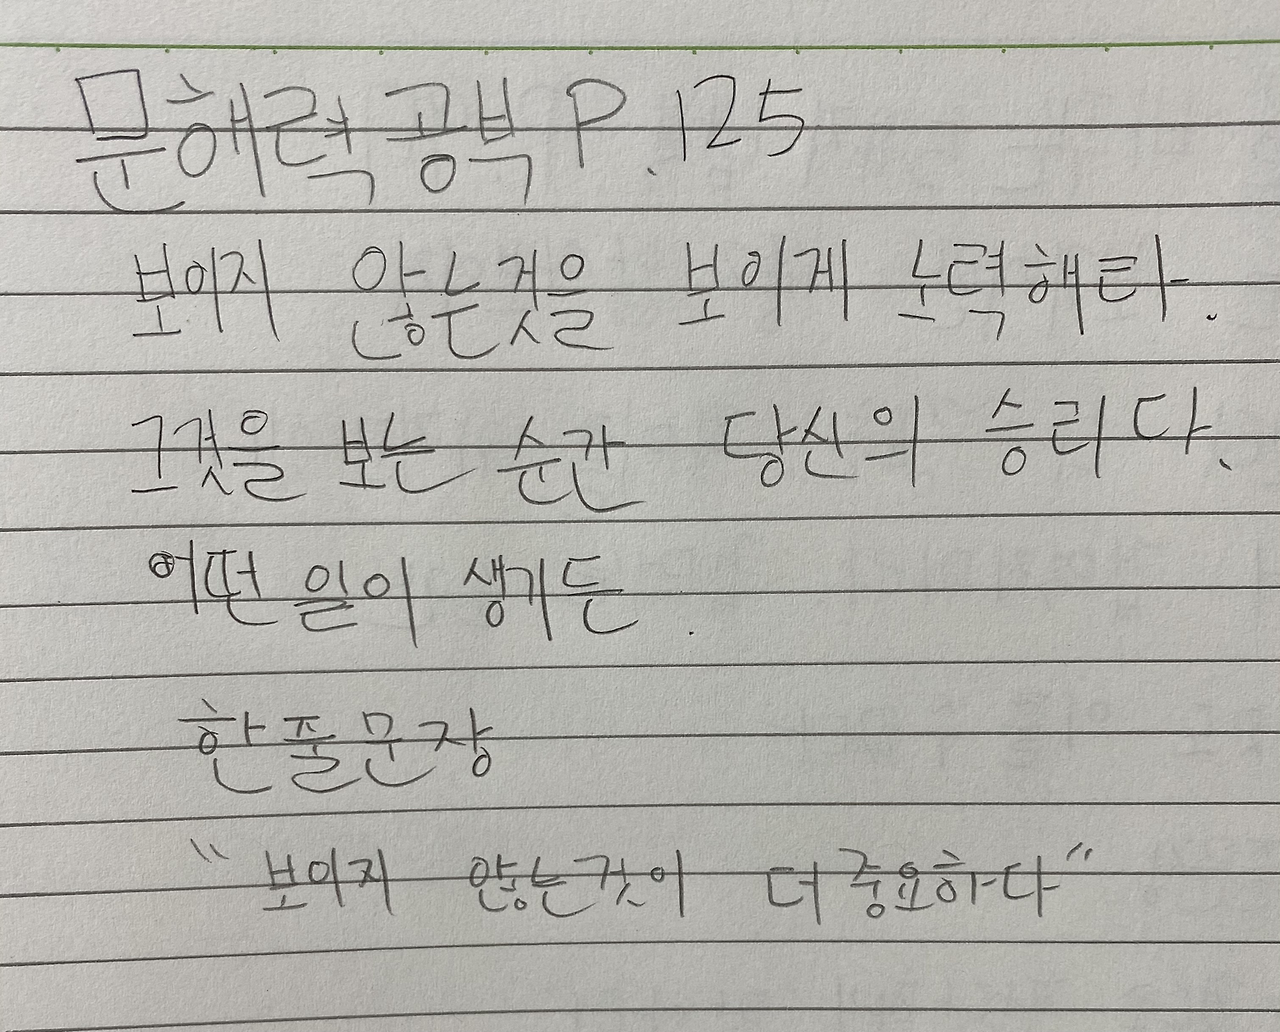 문해력 공부 P.125
보이지 않는것을 보이게 노력해라.
그것을 보는 순간 당신의 승리다.
어떤 일이 생기든.
한줄문장
"보이지 않는것이 더 중요하다"